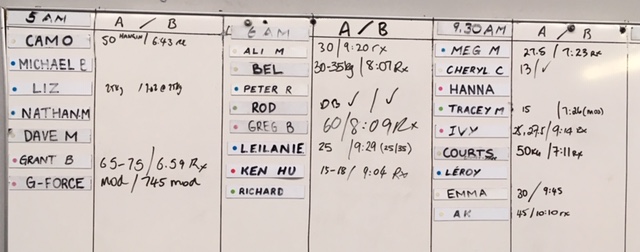 5 AM A / B
CAMO 50 / 6.43 rx
MICHAEL B
LIZ 25kg /
NATHAN.M
DAVE M
GRANT B 65-75 / 6.59 Rx
G-FORCE mod / 745 mod
6 AM A / B
ALI M 30 / 9:20 rx
BEL 30-35kg / 8:07 Rx
PETER R
ROD DB ✓ / ✓
GREG B 60 / 8:09 Rx
LEILANIE 25 / 9:29 (25/35)
KEN HU 15-18 / 9:04 Rx
RICHARD
9.30AM A / B
MEG M 27.5 / 7:23 Rx
CHERYL C 13 / ✓
HANNA
TRACEY M 15 / 7:26 (mod)
IVY 25, 27.5 / 9:14 Rx
COURTS 50kg / 7:11 Rx
LEROY
EMMA 30 / 9:45
AK 45 / 10:10 rx